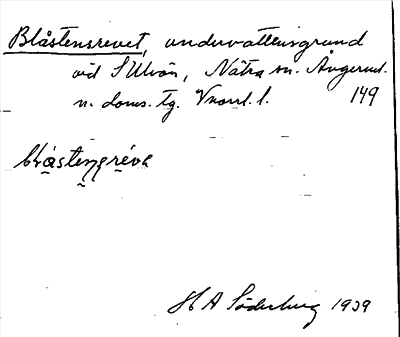 Blåstensrevet, undervattensgrund
vid S Ulvön, Nätra sn. Ångerml.
n. doms. tg. Vnorrl. l. 149
blåstengréva
H A Söderberg 1939